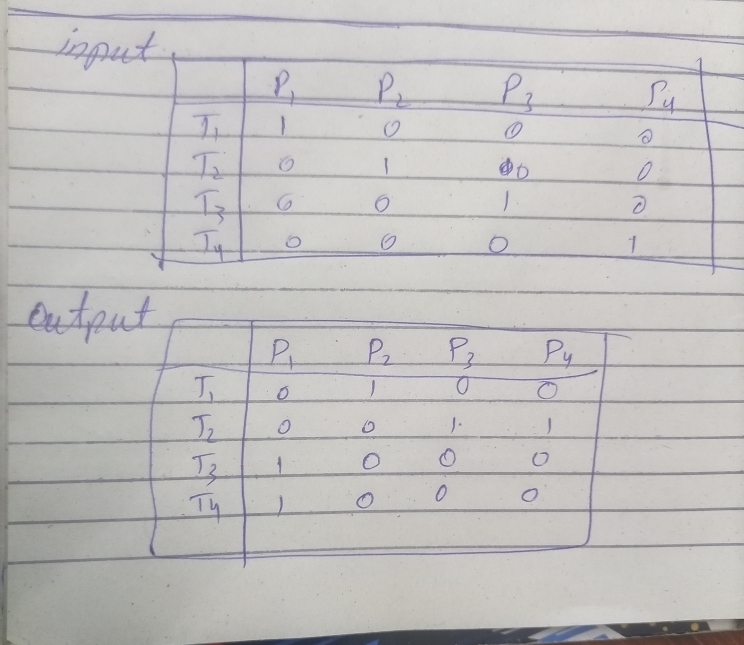 input
P1 P2 P3 P4
T1 1 0 0 0
T2 0 1 0 0
T3 0 0 1 0
T4 0 0 0 1
output
P1 P2 P3 P4
T1 0 1 0 0
T2 0 0 1 1
T3 1 0 0 0
T4 1 0 0 0